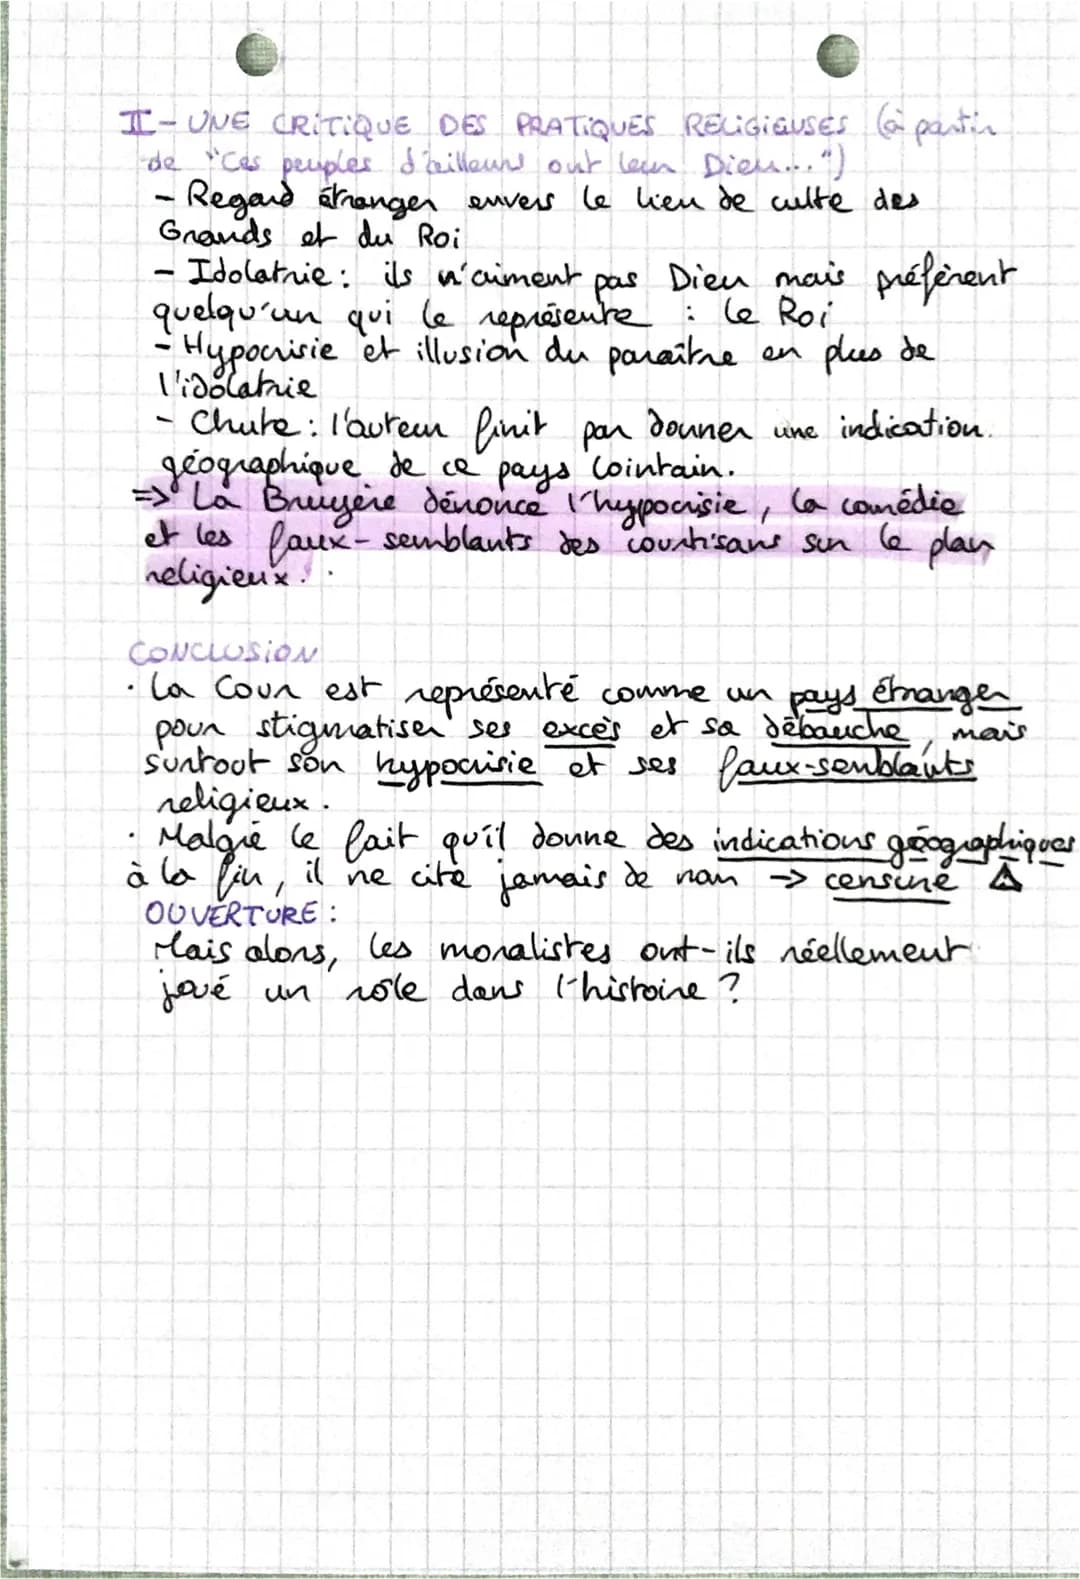 II - UNE CRITIQUE DES PRATIQUES RELIGIEUSES (à partir
de "Ces peuples d'ailleurs ont leur Dieu...")
- Regard étranger envers le lieu de culte des
Grands et du Roi
- Idolatrie : ils n'aiment pas Dieu mais préfèrent
quelqu'un qui le représente : le Roi
- Hypocrisie et illusion du paraître en plus de
l'idolatrie
- Chute : l'auteur finit par donner une indication
géographique de ce pays lointain.
=> La Bruyère dénonce l'hypocrisie, la comédie
et les faux-semblants des courtisans sur le plan
religieux.
CONCLUSION
· La Cour est représenté comme un pays étranger
pour stigmatiser ses excès et sa débauche, mais
surtout son hypocrisie et ses faux-semblants
religieux.
· Malgré le fait qu'il donne des indications géographiques
à la fin, il ne cite jamais de nom → censure ⚠
OUVERTURE :
Mais alors, les moralistes ont-ils réellement
joué un rôle dans l'histoire ?